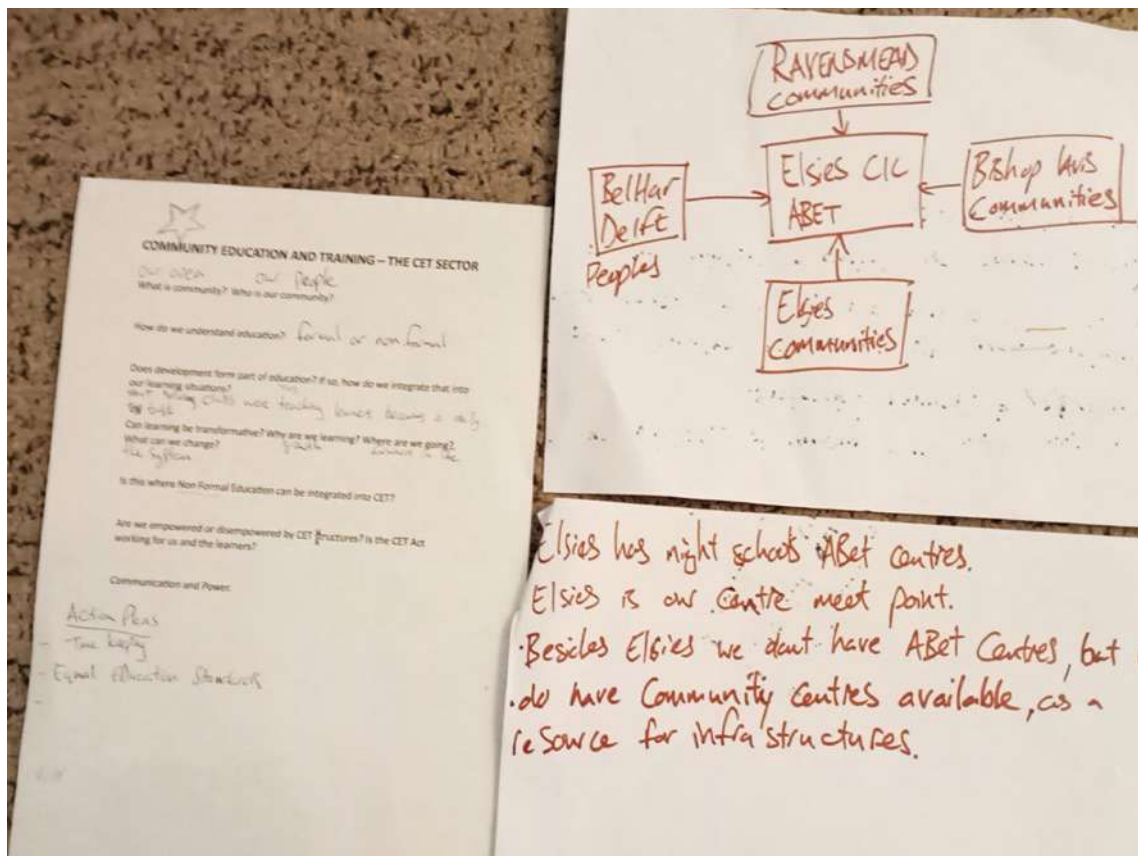 COMMUNITY EDUCATION AND TRAINING – THE CET SECTOR
our area our people
What is community? Who is our community?
How do we understand education? formal or non formal
Does development form part of education? If so, how do we integrate that into
our learning situations?
teaching learners
Can learning be transformative? Why are we learning? Where are we going?
What can we change?
the system
Is this where Non Formal Education can be integrated into CET?
Are we empowered or disempowered by CET structures? Is the CET Act
working for us and the learners?
Communication and Power.
Action Plans
- Time keeping
- Equal Education Standards
-
RAVENSMEAD
communities
BelHar
Delft
Peoples
Elsies CLC
ABET
Bishop lavis
Communities
Elsies
communities
Elsies has night schools ABet centres.
Elsies is our centre meet point.
·Besides Elsies we dont have ABet Centres, but
·do have Community centres available, as a
resource for infra structures.